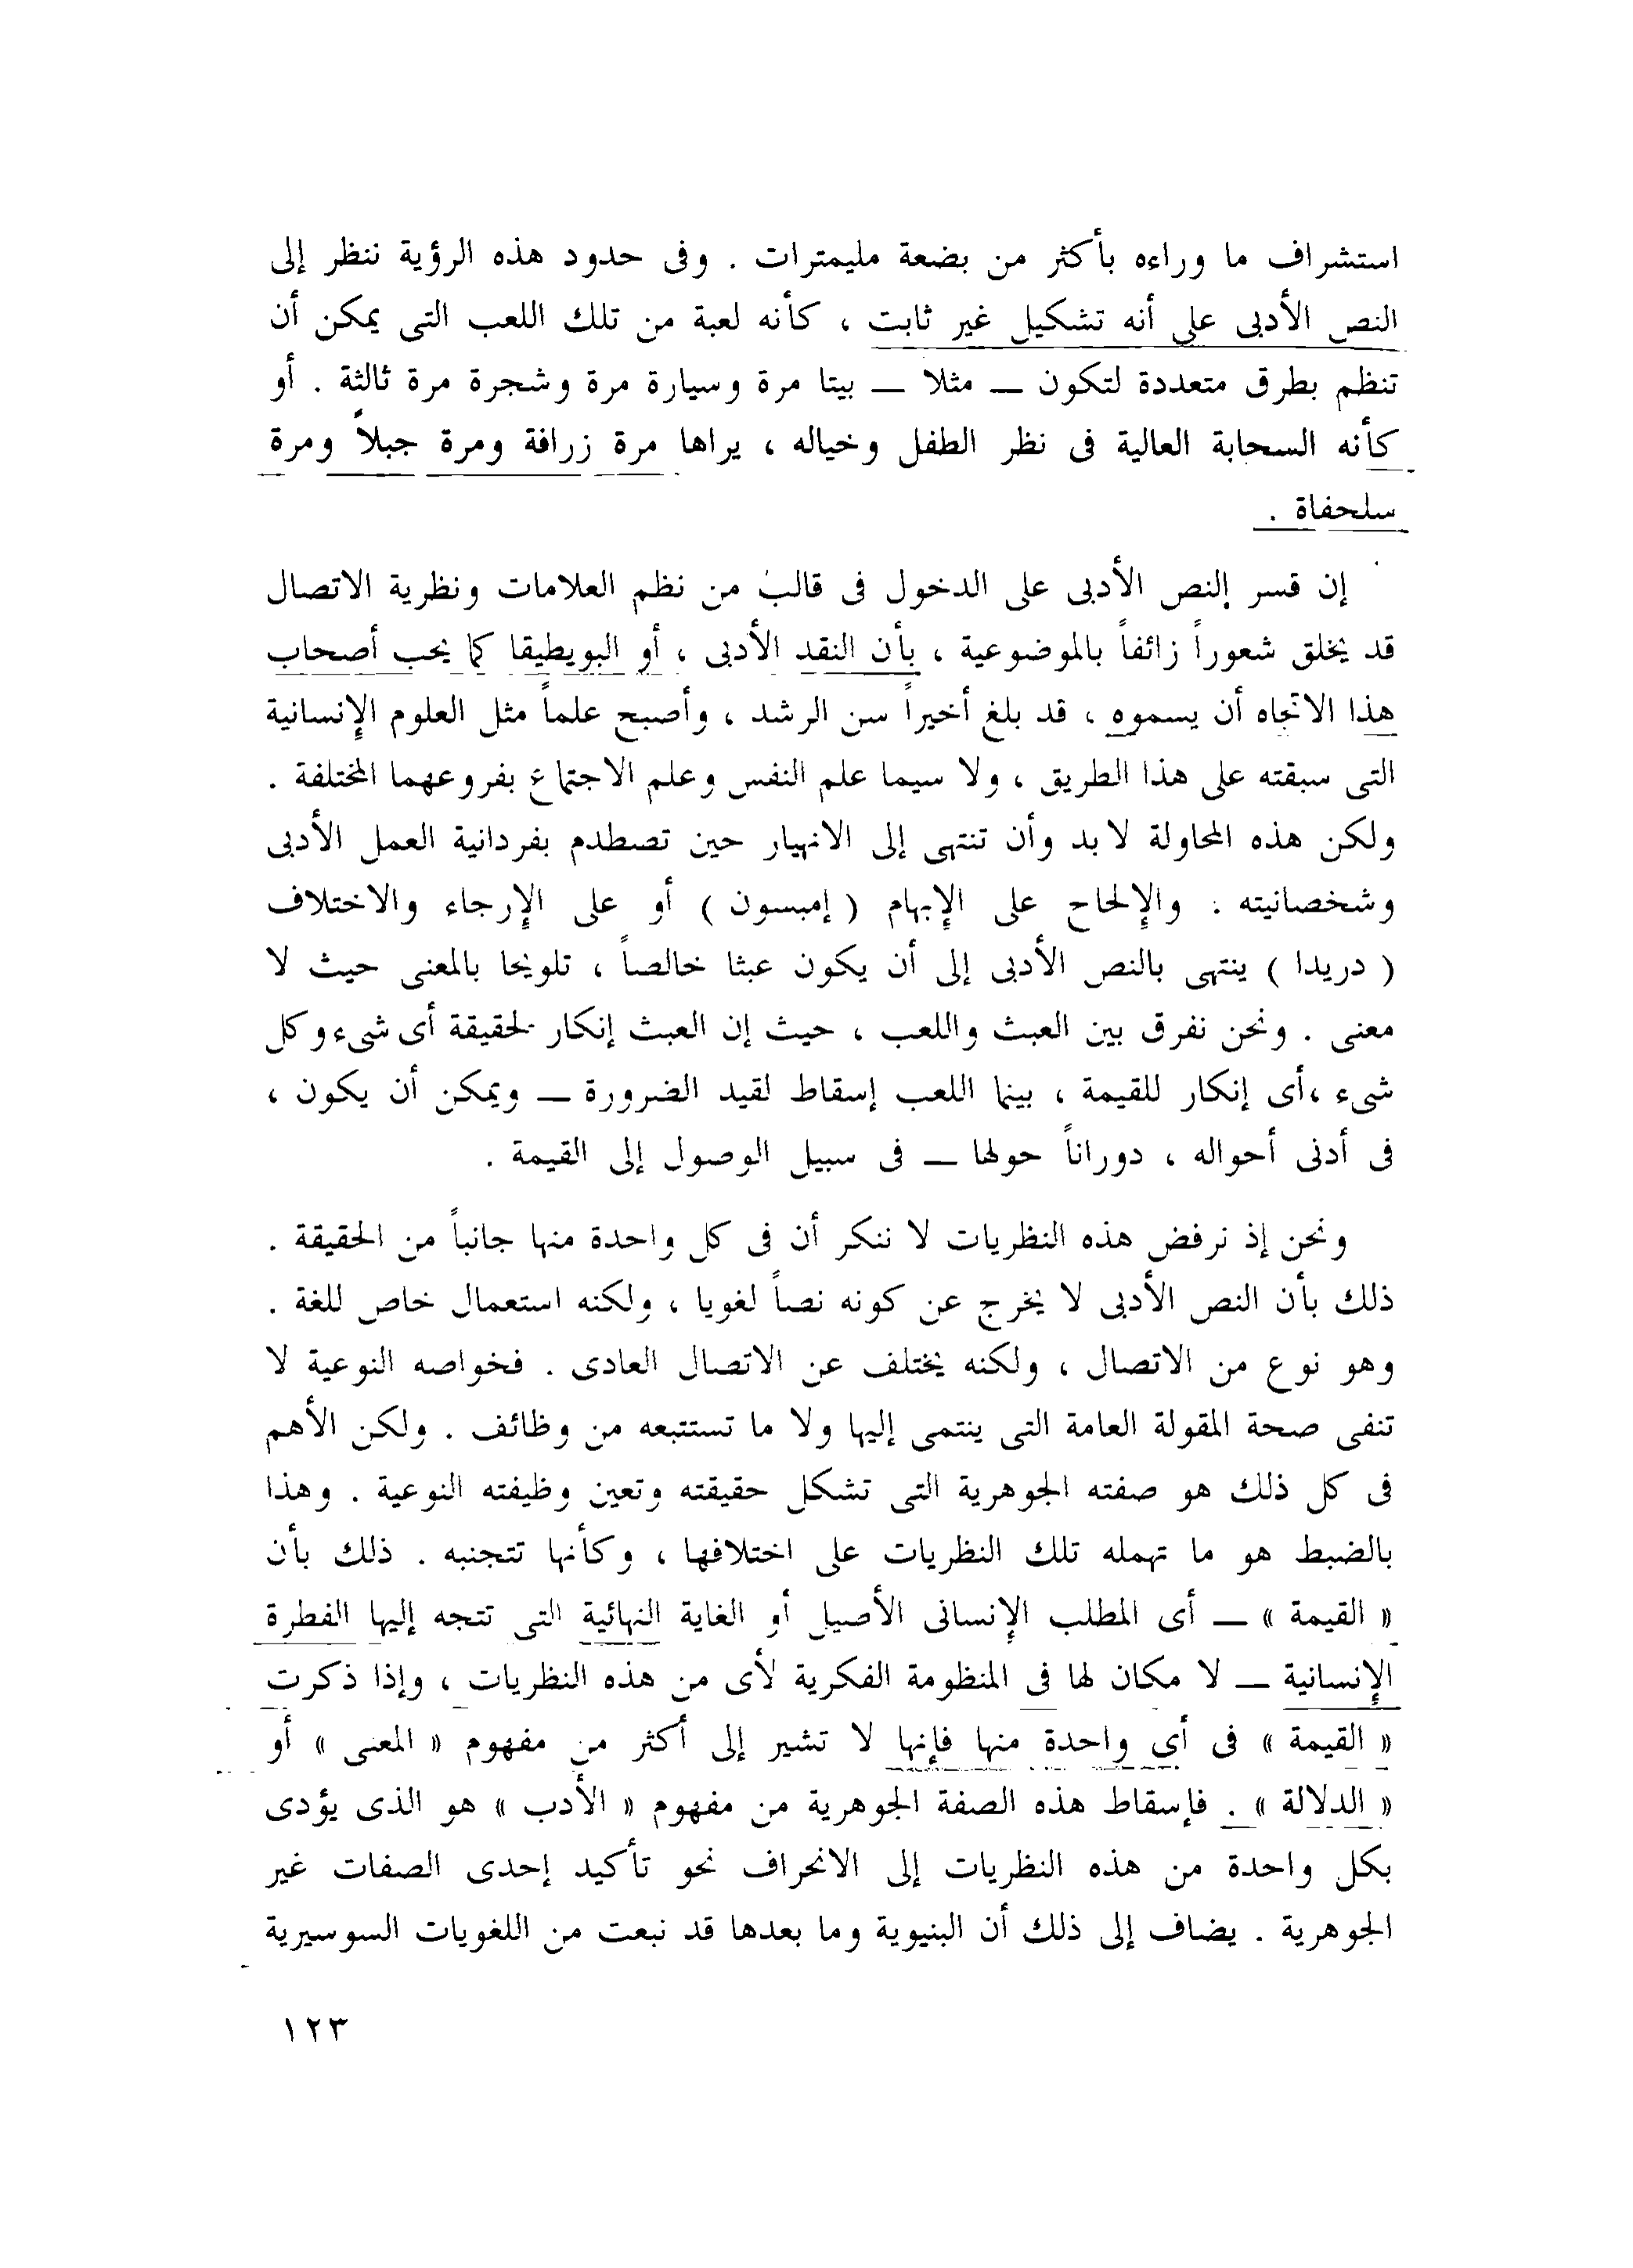 استشراف ما وراءه بأكثر من بضعة مليمترات . وفى حدود هذه الرؤية ننظر إلى
النص الأدبى على أنه تشكيل غير ثابت ، كأنه لعبة من تلك اللعب التى يمكن أن
تنظم بطرق متعددة لتكون ــ مثلا ــ بيتا مرة وسيارة مرة وشجرة مرة ثالثة . أو
كأنه السحابة العالية فى نظر الطفل وخياله ، يراها مرة زرافة ومرة جبلاً ومرة
سلحفاة .
إن قسر النص الأدبى على الدخول فى قالب من نظم العلامات ونظرية الاتصال
قد يخلق شعوراً زائفاً بالموضوعية ، بأن النقد الأدبى ، أو البويطيقا كما يحب أصحاب
هذا الاتجاه أن يسموه ، قد بلغ أخيراً سن الرشد ، وأصبح علماً مثل العلوم الإنسانية
التى سبقته على هذا الطريق ، ولا سيما علم النفس وعلم الاجتماع بفروعهما المختلفة .
ولكن هذه المحاولة لا بد وأن تنتهى إلى الانهيار حين تصطدم بفردانية العمل الأدبى
وشخصانيته . والإلحاح على الإبهام ( إمبسون ) أو على الإرجاء والاختلاف
( دريدا ) ينتهى بالنص الأدبى إلى أن يكون عبثا خالصاً ، تلويحا بالمعنى حيث لا
معنى . ونحن نفرق بين العبث واللعب ، حيث إن العبث إنكار لحقيقة أى شىء وكل
شىء ،أى إنكار للقيمة ، بينما اللعب إسقاط لقيد الضرورة ــ ويمكن أن يكون ،
فى أدنى أحواله ، دوراناً حولها ــ فى سبيل الوصول إلى القيمة .
ونحن إذ نرفض هذه النظريات لا ننكر أن فى كل واحدة منها جانباً من الحقيقة .
ذلك بأن النص الأدبى لا يخرج عن كونه نصاً لغويا ، ولكنه استعمال خاص للغة .
وهو نوع من الاتصال ، ولكنه يختلف عن الاتصال العادى . فخواصه النوعية لا
تنفى صحة المقولة العامة التى ينتمى إليها ولا ما تستتبعه من وظائف . ولكن الأهم
فى كل ذلك هو صفته الجوهرية التى تشكل حقيقته وتعين وظيفته النوعية . وهذا
بالضبط هو ما تهمله تلك النظريات على اختلافها ، وكأنها تتجنبه . ذلك بأن
« القيمة » ــ أى المطلب الإنسانى الأصيل أو الغاية النهائية التى تتجه إليها الفطرة
الإنسانية ــ لا مكان لها فى المنظومة الفكرية لأى من هذه النظريات ، وإذا ذكرت
« القيمة » فى أى واحدة منها فإنها لا تشير إلى أكثر من مفهوم « المعنى » أو
« الدلالة » . فإسقاط هذه الصفة الجوهرية من مفهوم « الأدب » هو الذى يؤدى
بكل واحدة من هذه النظريات إلى الانحراف نحو تأكيد إحدى الصفات غير
الجوهرية . يضاف إلى ذلك أن البنيوية وما بعدها قد نبعت من اللغويات السوسيرية
١٢٣